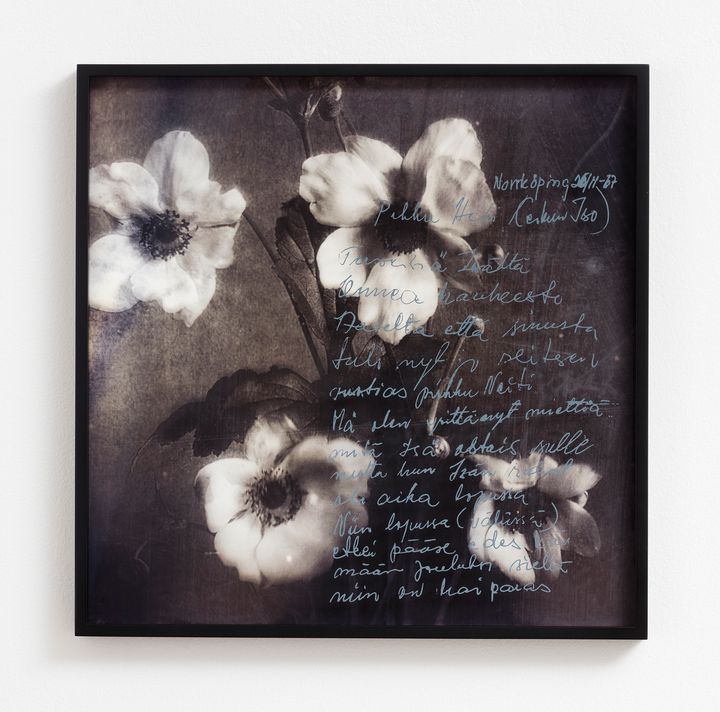 Norrköping 26/11-67
Pikku Heli (eikun Iso)
Terveisiä Isältä
Onnea kauheesto
Aatella että sinusta
tuli nyt seitsen
vuotias pikku Neiti
Mä olen yrittänyt miettiä
mitä Isä ostais sulle
mutta kun Isän rahat
on aika lopussa
Niin lopussa (vähissä)
ettei pääse edes
määän Jouluksi sielä
niin on kai paras